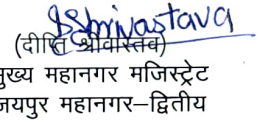 DShrivastava
(दीप्ति श्रीवास्तव)
मुख्य महानगर मजिस्ट्रेट
जयपुर महानगर–द्वितीय